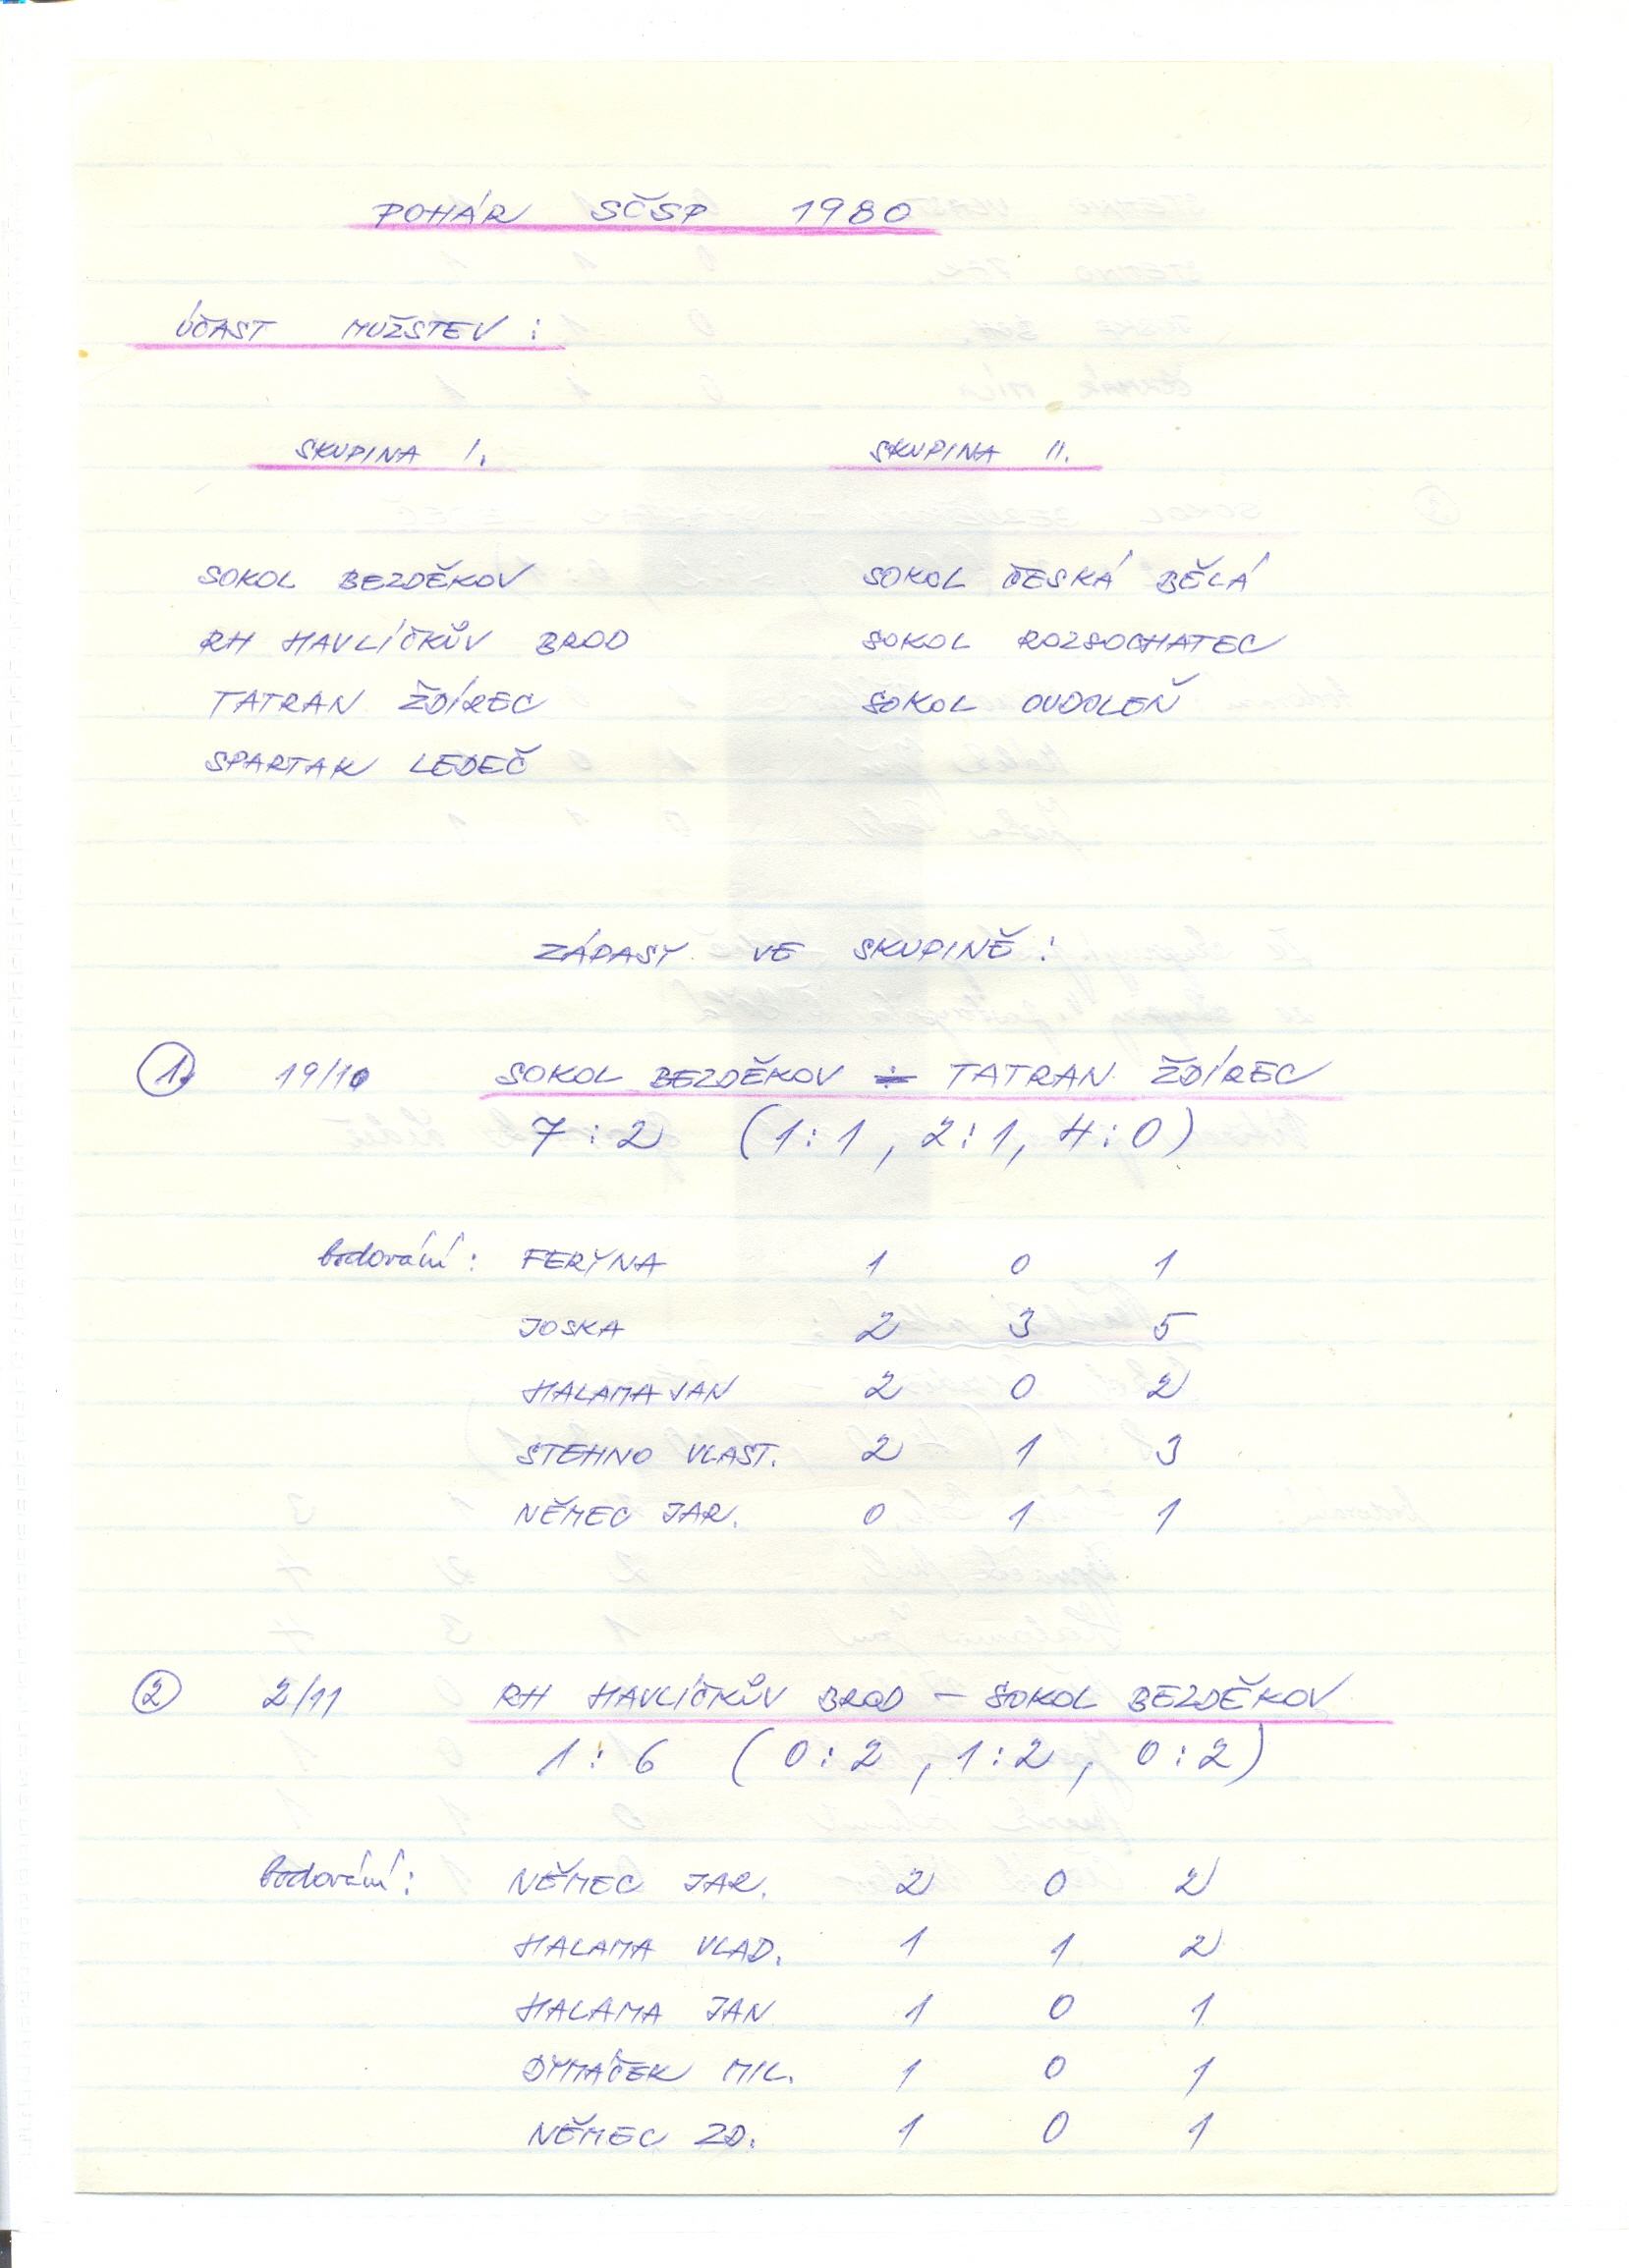 POHÁR SČSP 1980
ÚČAST MUŽSTEV :
SKUPINA I. SKUPINA II.
SOKOL BEZDĚKOV SOKOL ČESKÁ BĚLÁ
RH HAVLÍČKŮV BROD SOKOL ROZSOCHATEC
TATRAN ŽDÍREC SOKOL OUDOLEŇ
SPARTAK LEDEČ
ZÁPASY VE SKUPINĚ :
1. 19/10 SOKOL BEZDĚKOV - TATRAN ŽDÍREC
7 : 2 (1:1, 2:1, 4:0)
bodování : FERYNA 1 0 1
JOSKA 2 3 5
HALAMA JAN 2 0 2
STEHNO VLAST. 2 1 3
NĚMEC JAR. 0 1 1
2 2/11 RH HAVLÍČKŮV BROD - SOKOL BEZDĚKOV
1 : 6 (0:2, 1:2, 0:2)
bodování : NĚMEC JAR. 2 0 2
HALAMA VLAD. 1 1 2
HALAMA JAN 1 0 1
DYMÁČEK MIL. 1 0 1
NĚMEC ZD. 1 0 1